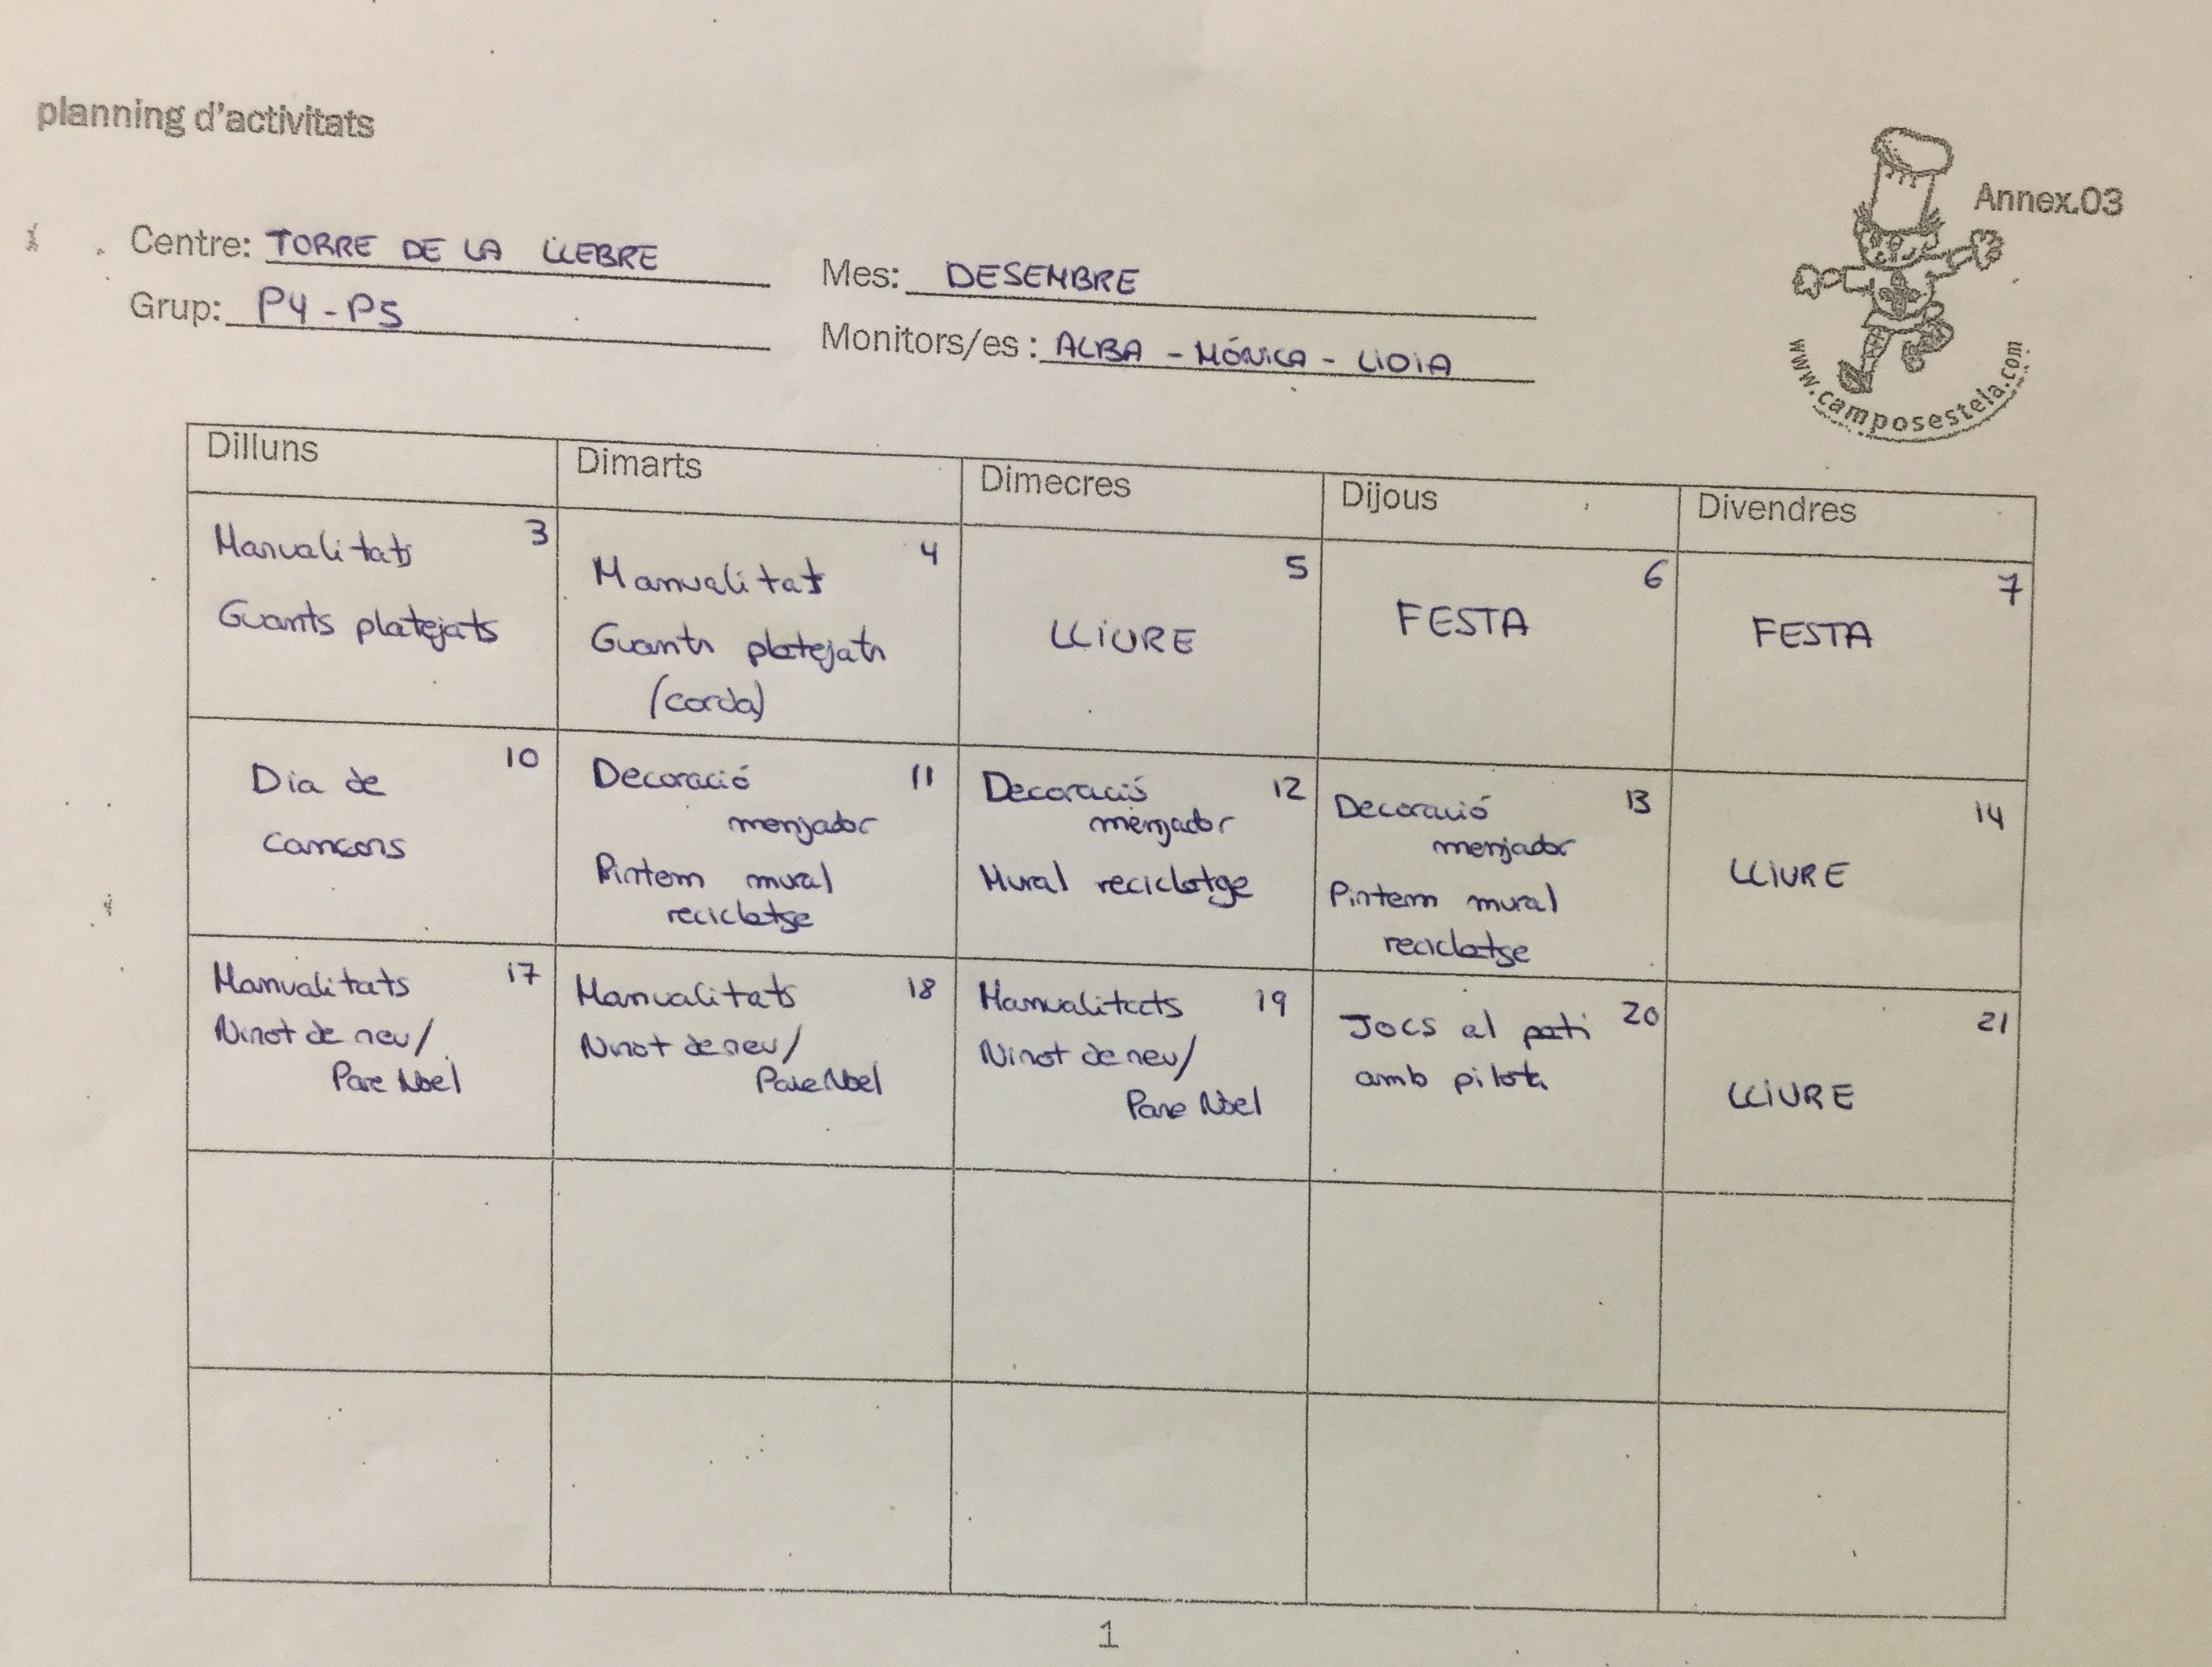 planning d'activitats
Annex.03
Centre: TORRE DE LA LLEBRE
Mes: DESEMBRE
Grup: P4 - P5
Monitors/es: ALBA - MÓNICA - LIDIA
www.camposestela.com
Dilluns Dimarts Dimecres Dijous Divendres
3
Manualitats
Guants platejats
4
Manualitats
Guants platejats
(corda)
5
LLIURE
6
FESTA
7
FESTA
10
Dia de
cançons
Decoració 11
menjador
Pintem mural
reciclatge
Decoració 12
menjador
Mural reciclatge
Decoració 13
menjador
Pintem mural
reciclatge
14
LLIURE
Manualitats 17
Ninot de neu/
Pare Noel
Manualitats 18
Ninot de neu/
Pare Noel
Manualitats 19
Ninot de neu/
Pare Noel
Jocs al pati 20
amb pilota
21
LLIURE
1